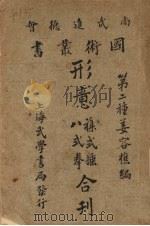 尚武進德會
國術叢書
第二種姜容樵編
形意
雜式捶
八式拳
合刊
上海武學書局發行